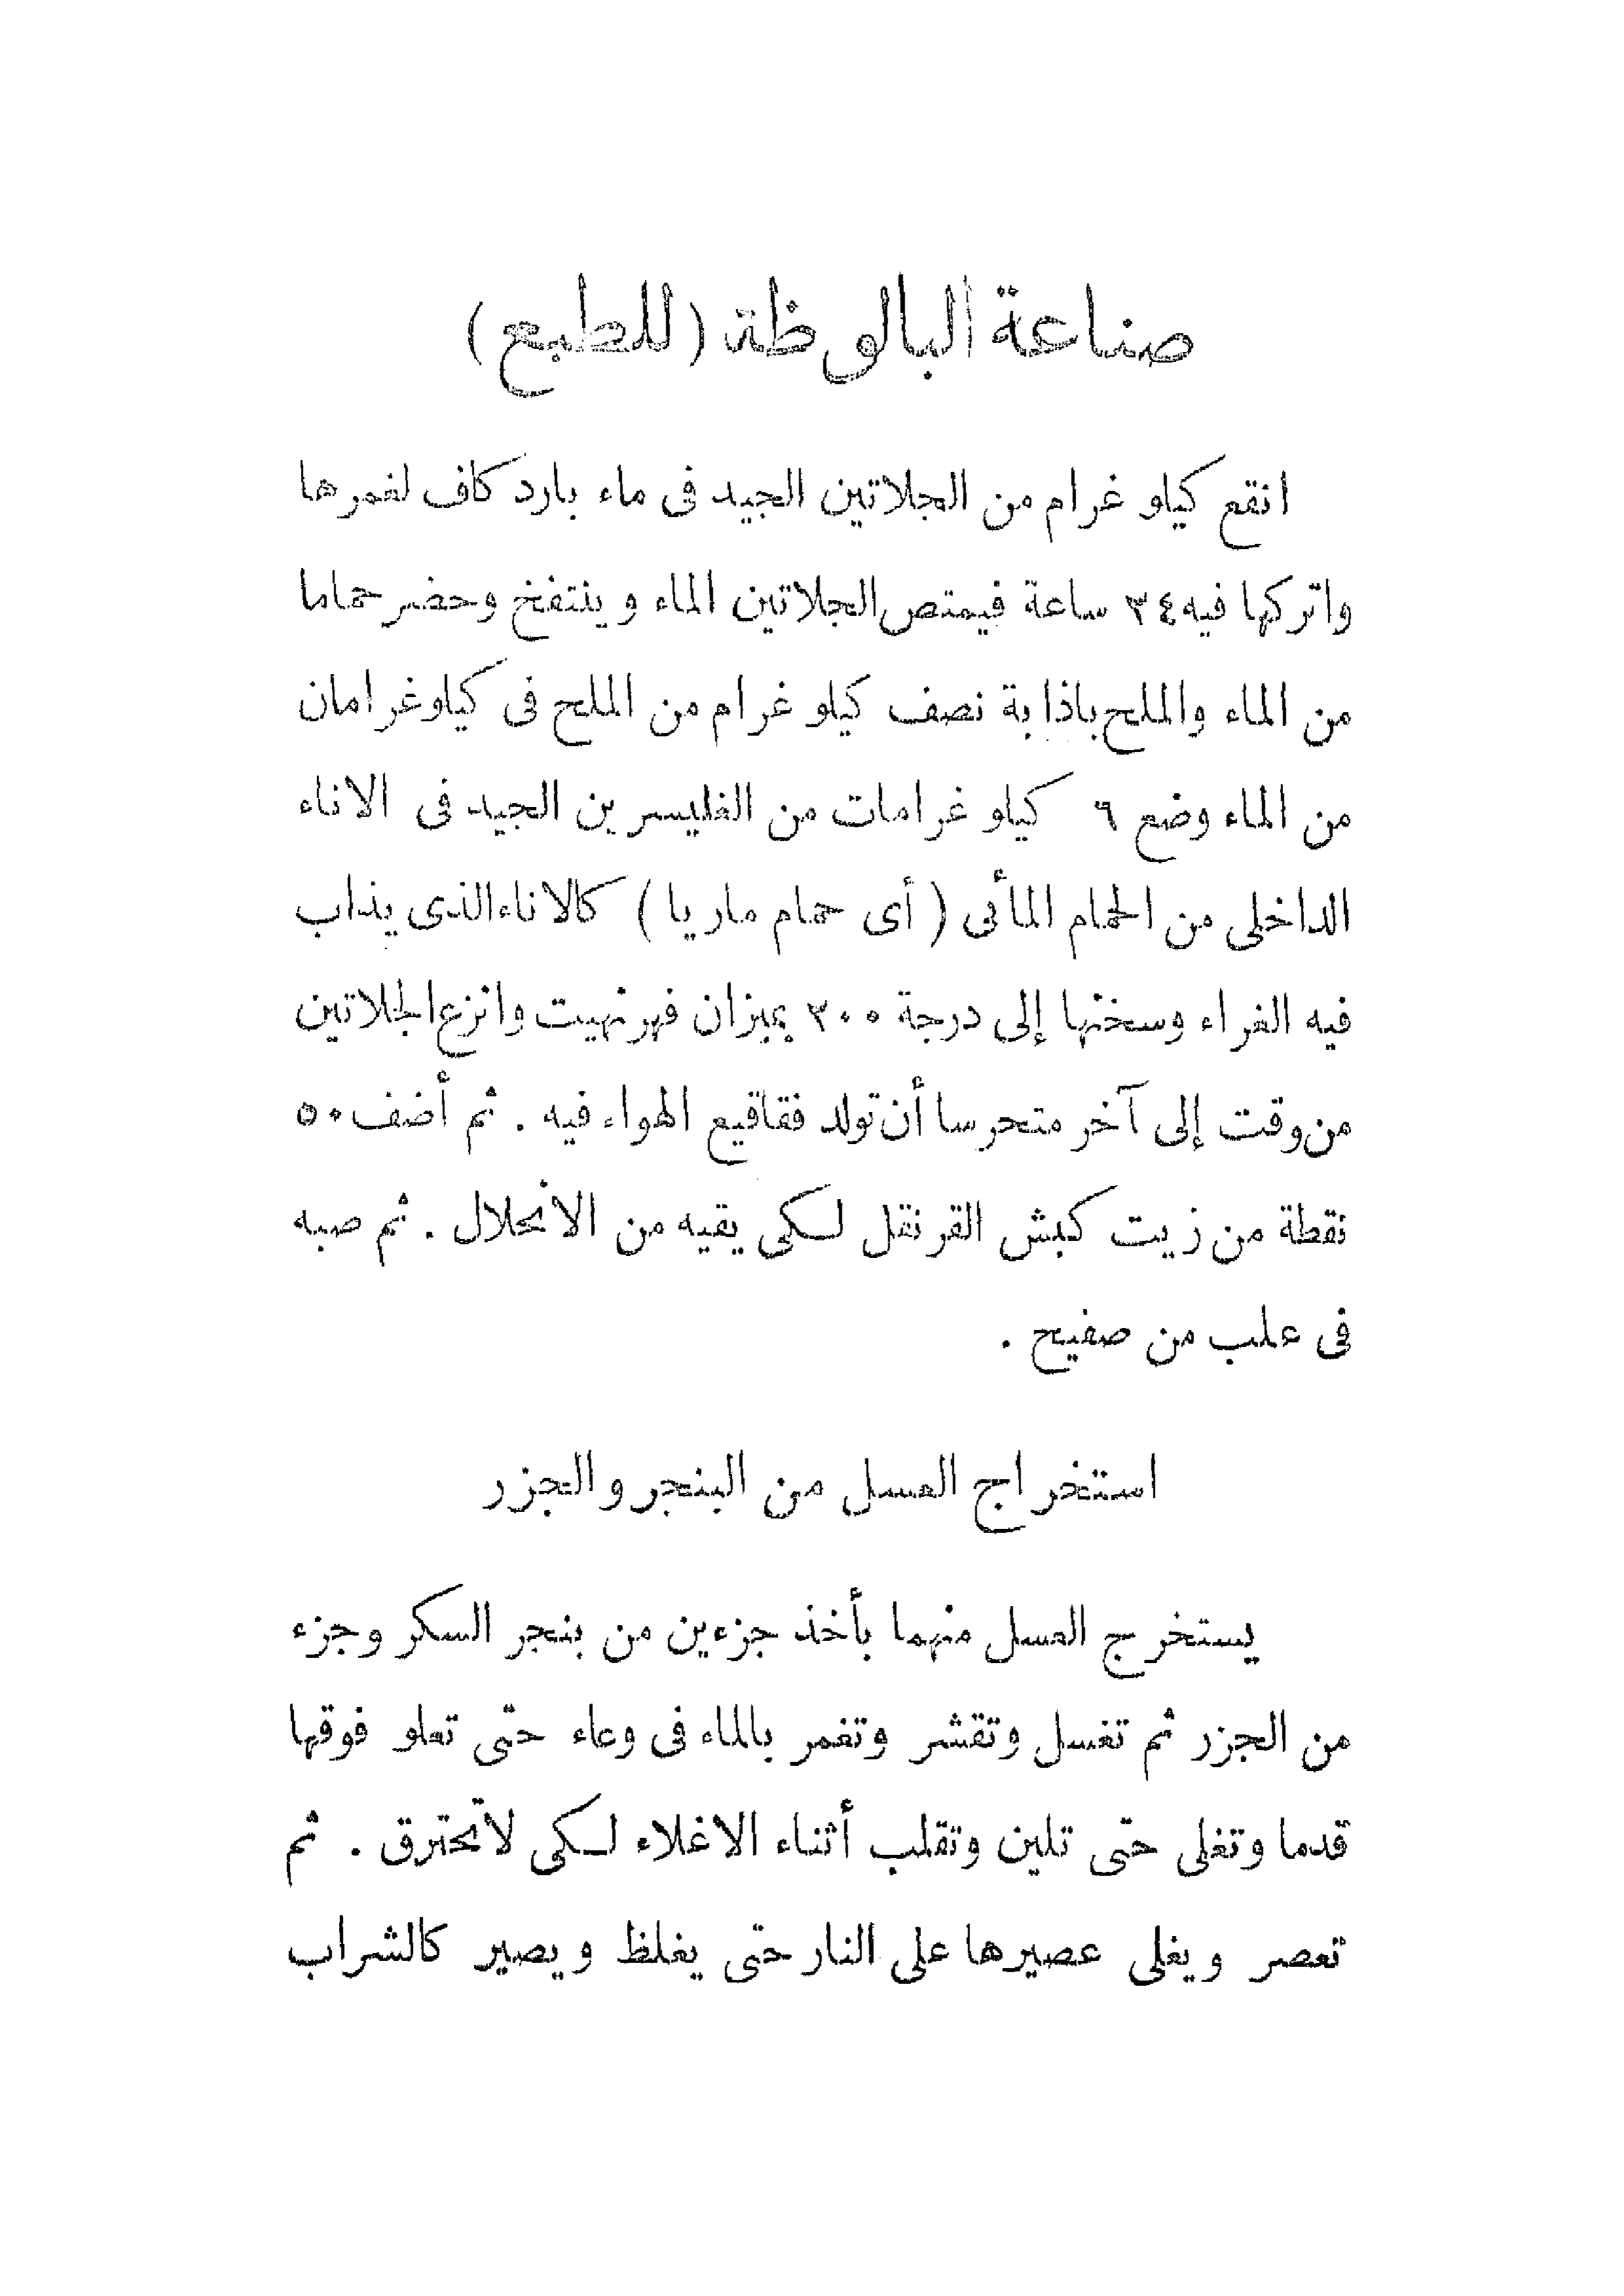 صناعة البالوظة (للطبع)
انقع كيلو غرام من الجلاتين الجيد فى ماء بارد كاف لغمرها
واتركها فيه ٢٤ ساعة فيمتص الجلاتين الماء وينتفخ وحضر حماما
من الماء والملح باذابة نصف كيلو غرام من الملح فى كيلوغرامان
من الماء وضع ٦ كيلو غرامات من الغليسرين الجيد فى الاناء
الداخلى من الحمام المأئى (أى حمام ماريا) كالاناء الذى يذاب
فيه الغراء وسخنها إلى درجة ٢٠٠ بميزان فهرنهيت وانزع الجلاتين
من وقت إلى آخر متحرسا أن تولد فقاقيع الهواء فيه . ثم أضف ٥٠
نقطة من زيت كبش القرنقل لكى يقيه من الانحلال . ثم صبه
فى علب من صفيح .
استخراج العسل من البنجر والجزر
يستخرج العسل منهما بأخذ جزءين من بنجر السكر وجزء
من الجزر ثم تغسل وتقشر وتغمر بالماء فى وعاء حتى تعلو فوقها
قدما وتغلى حتى تلين وتقلب أثناء الاغلاء لكى لاتحترق . ثم
تعصر ويغلى عصيرها على النار حتى يغلظ ويصير كالشراب